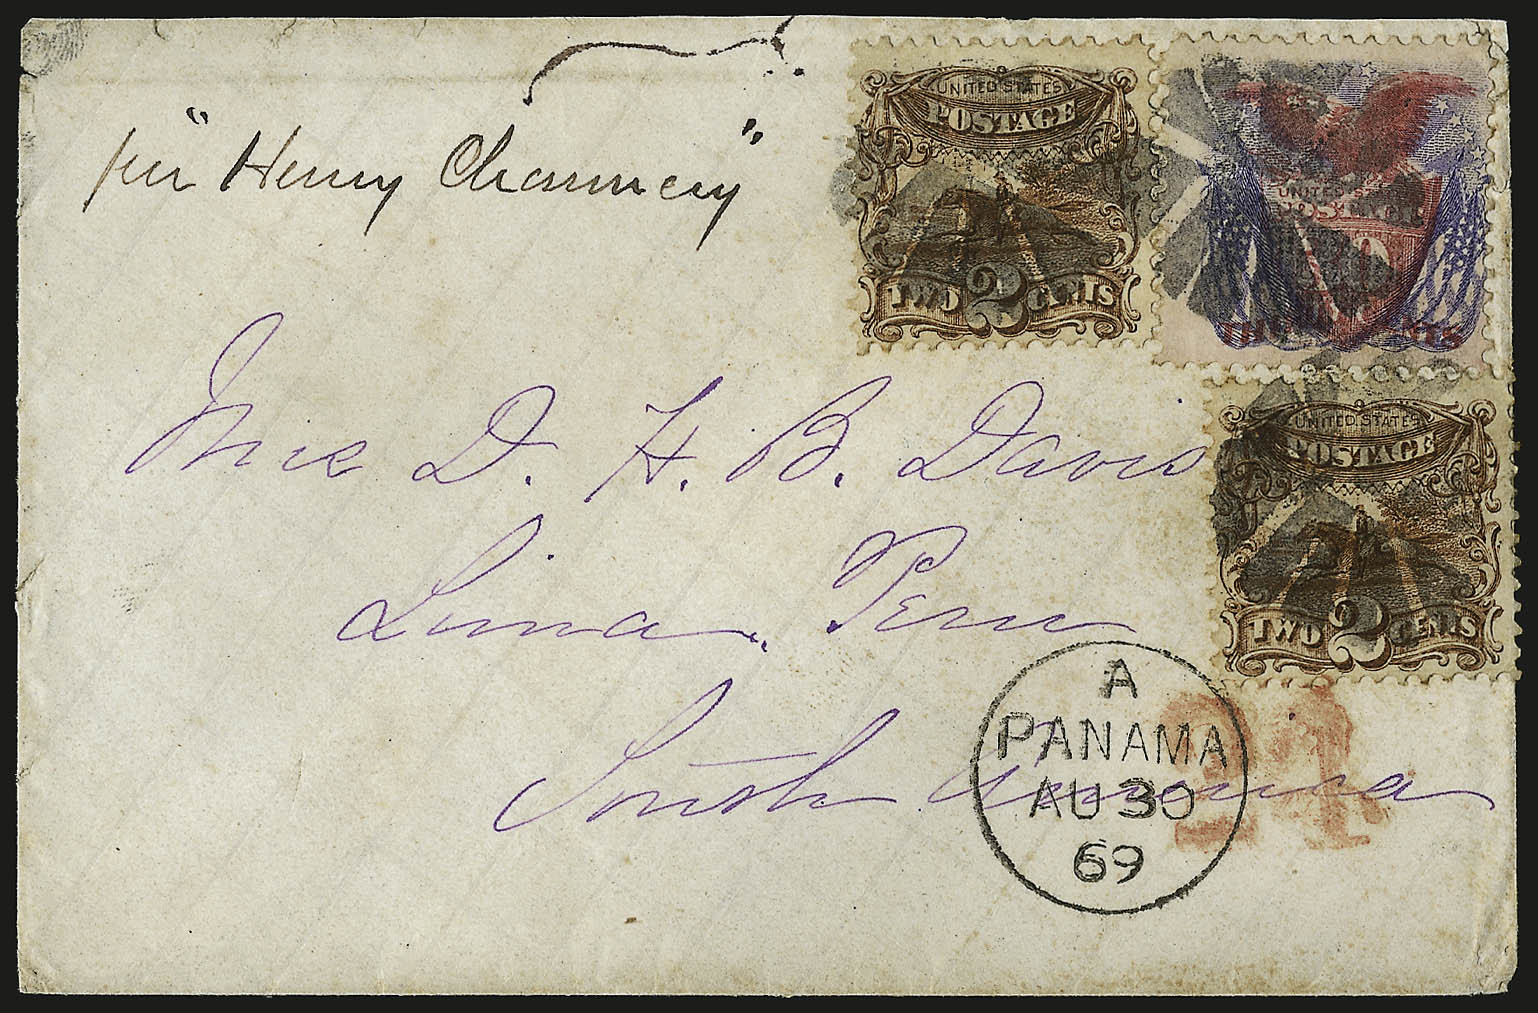 per "Henry Chauncey"
UNITED STATES
POSTAGE
TWO 2 CENTS
UNITED
CENTS
UNITED STATES
POSTAGE
TWO 2 CENTS
D. H. B. Davis
Lima. Peru
South America
A
PANAMA
AU 30
69
24